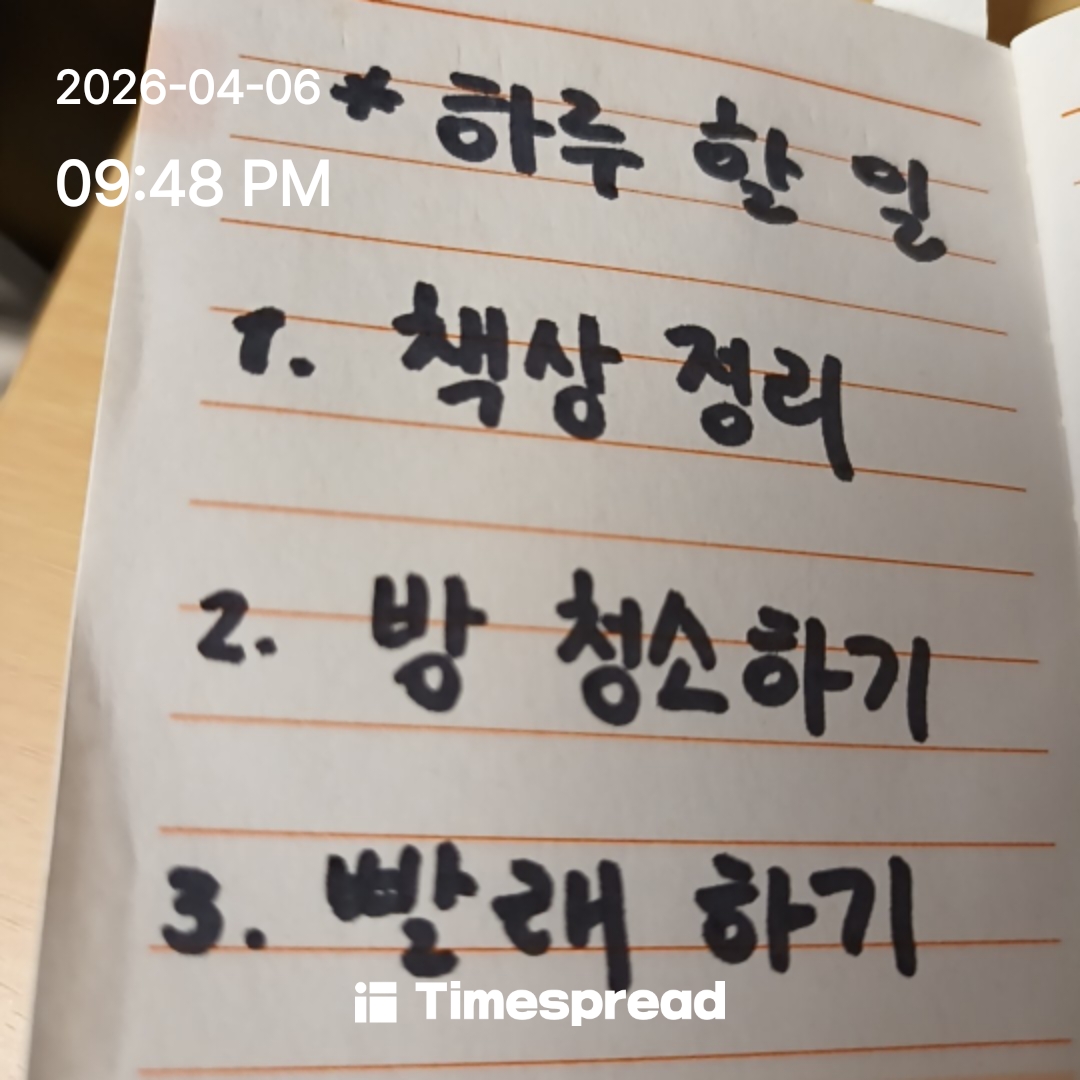 2026-04-06
09:48 PM
* 하루 할 일
1. 책상 정리
2. 방 청소하기
3. 빨래 하기
Timespread